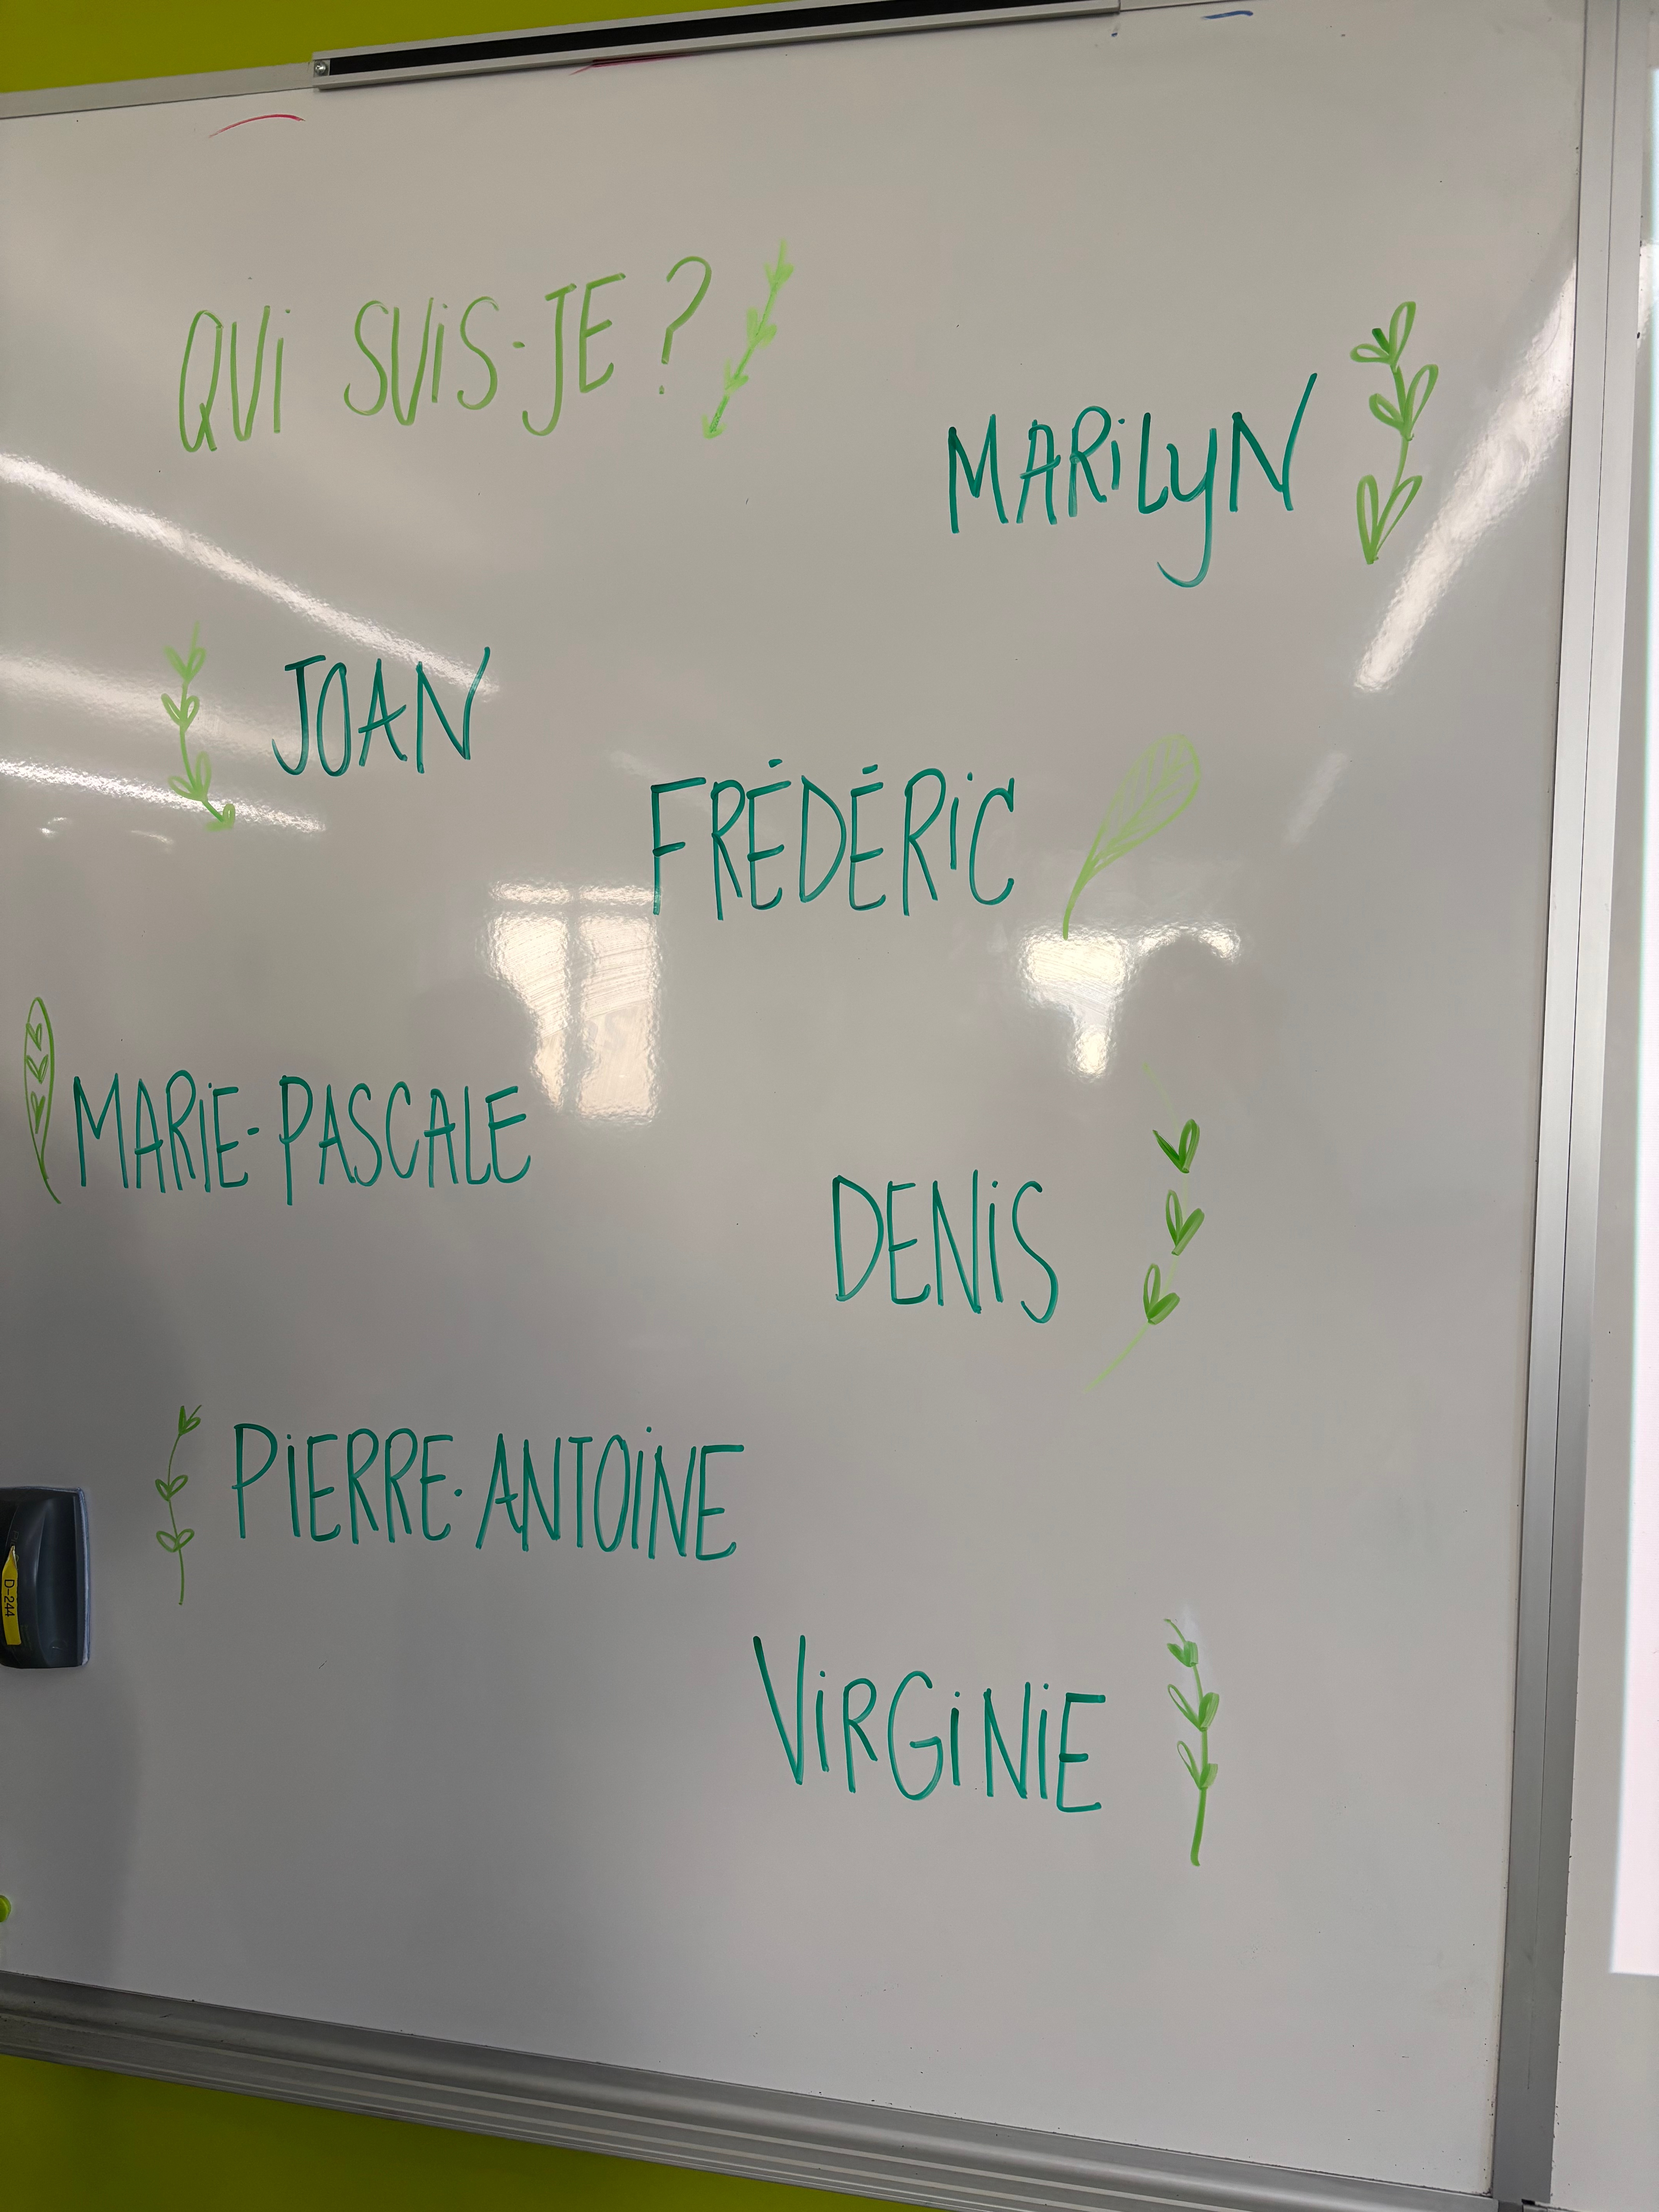 QUI SUIS-JE ?
MARILYN
JOAN
FRÉDÉRIC
MARIE-PASCALE
DENIS
PIERRE-ANTOINE
D-244
VIRGINIE